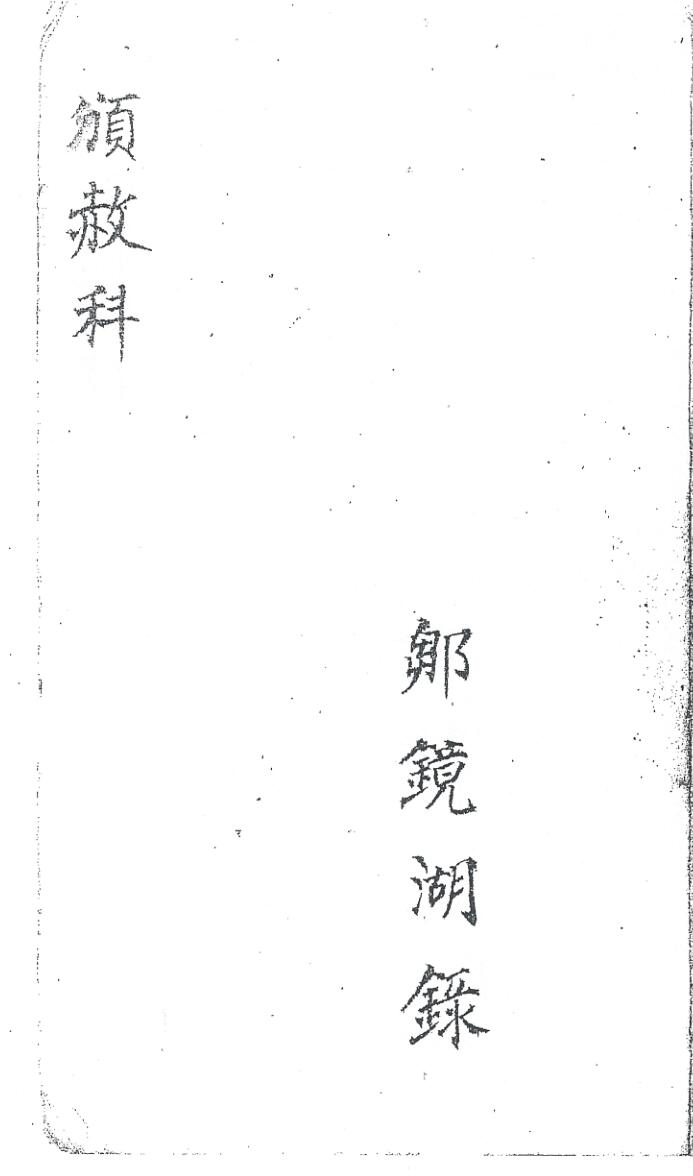 鏡湖錄
頒赦科